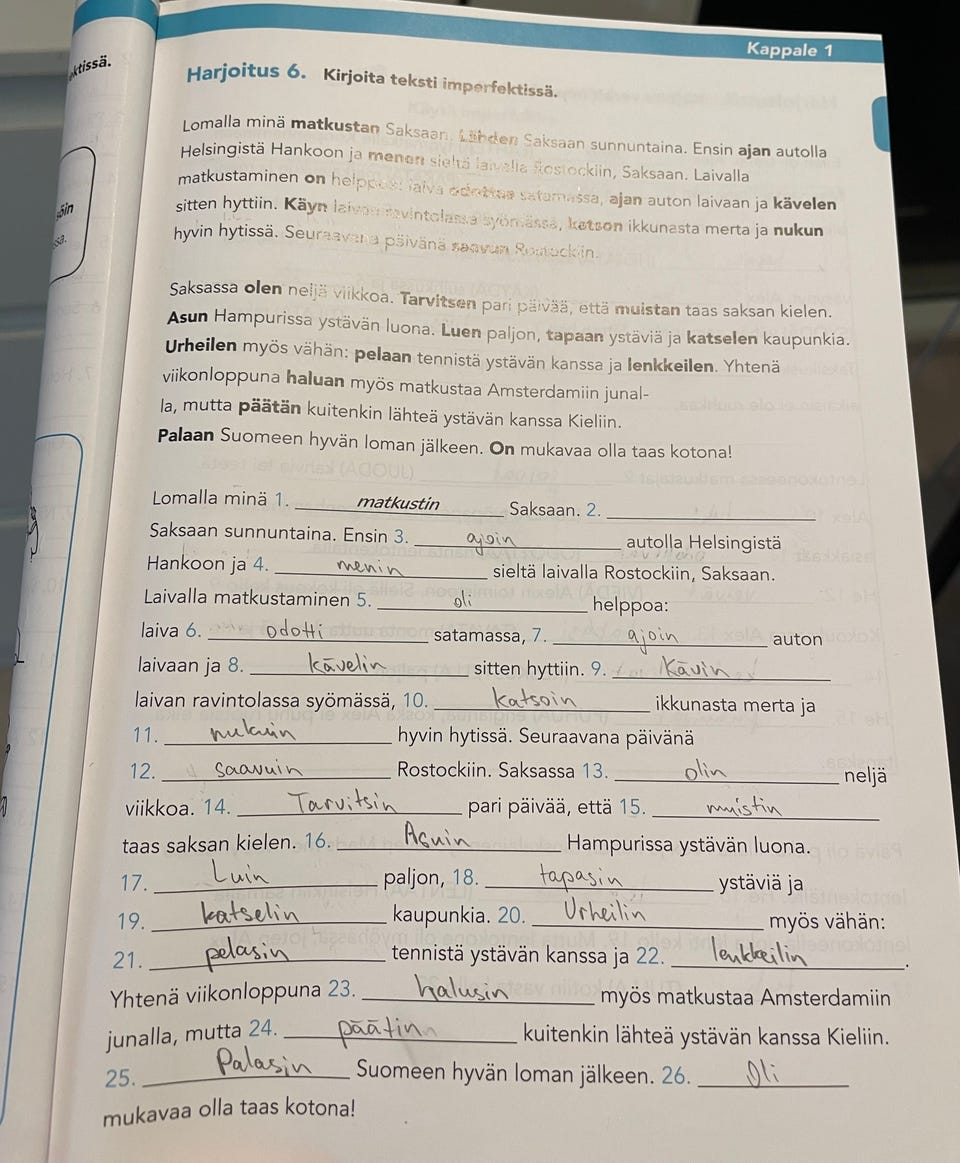 ektissä.
Kappale 1
Harjoitus 6. Kirjoita teksti imperfektissä.
Lomalla minä matkustan Saksaan. Lähden Saksaan sunnuntaina. Ensin ajan autolla
Helsingistä Hankoon ja menen sieltä laivalla Rostockiin, Saksaan. Laivalla
matkustaminen on helppoa: laiva odottaa satamassa, ajan auton laivaan ja kävelen
sitten hyttiin. Käyn laivan ravintolassa syömässä, katson ikkunasta merta ja nukun
hyvin hytissä. Seuraavana päivänä saavun Rostockiin.
Saksassa olen neljä viikkoa. Tarvitsen pari päivää, että muistan taas saksan kielen.
Asun Hampurissa ystävän luona. Luen paljon, tapaan ystäviä ja katselen kaupunkia.
Urheilen myös vähän: pelaan tennistä ystävän kanssa ja lenkkeilen. Yhtenä
viikonloppuna haluan myös matkustaa Amsterdamiin junal-
la, mutta päätän kuitenkin lähteä ystävän kanssa Kieliin.
Palaan Suomeen hyvän loman jälkeen. On mukavaa olla taas kotona!
Lomalla minä 1. matkustin Saksaan. 2.
Saksaan sunnuntaina. Ensin 3. ajoin autolla Helsingistä
Hankoon ja 4. menin sieltä laivalla Rostockiin, Saksaan.
Laivalla matkustaminen 5. oli helppoa:
laiva 6. odotti satamassa, 7. ajoin auton
laivaan ja 8. kävelin sitten hyttiin. 9. Kävin
laivan ravintolassa syömässä, 10. katsoin ikkunasta merta ja
11. nukuin hyvin hytissä. Seuraavana päivänä
12. saavuin Rostockiin. Saksassa 13. olin neljä
viikkoa. 14. Tarvitsin pari päivää, että 15. muistin
taas saksan kielen. 16. Asuin Hampurissa ystävän luona.
17. Luin paljon, 18. tapasin ystäviä ja
19. katselin kaupunkia. 20. Urheilin myös vähän:
21. pelasin tennistä ystävän kanssa ja 22. lenkkeilin.
Yhtenä viikonloppuna 23. halusin myös matkustaa Amsterdamiin
junalla, mutta 24. päätin kuitenkin lähteä ystävän kanssa Kieliin.
25. Palasin Suomeen hyvän loman jälkeen. 26. Oli
mukavaa olla taas kotona!